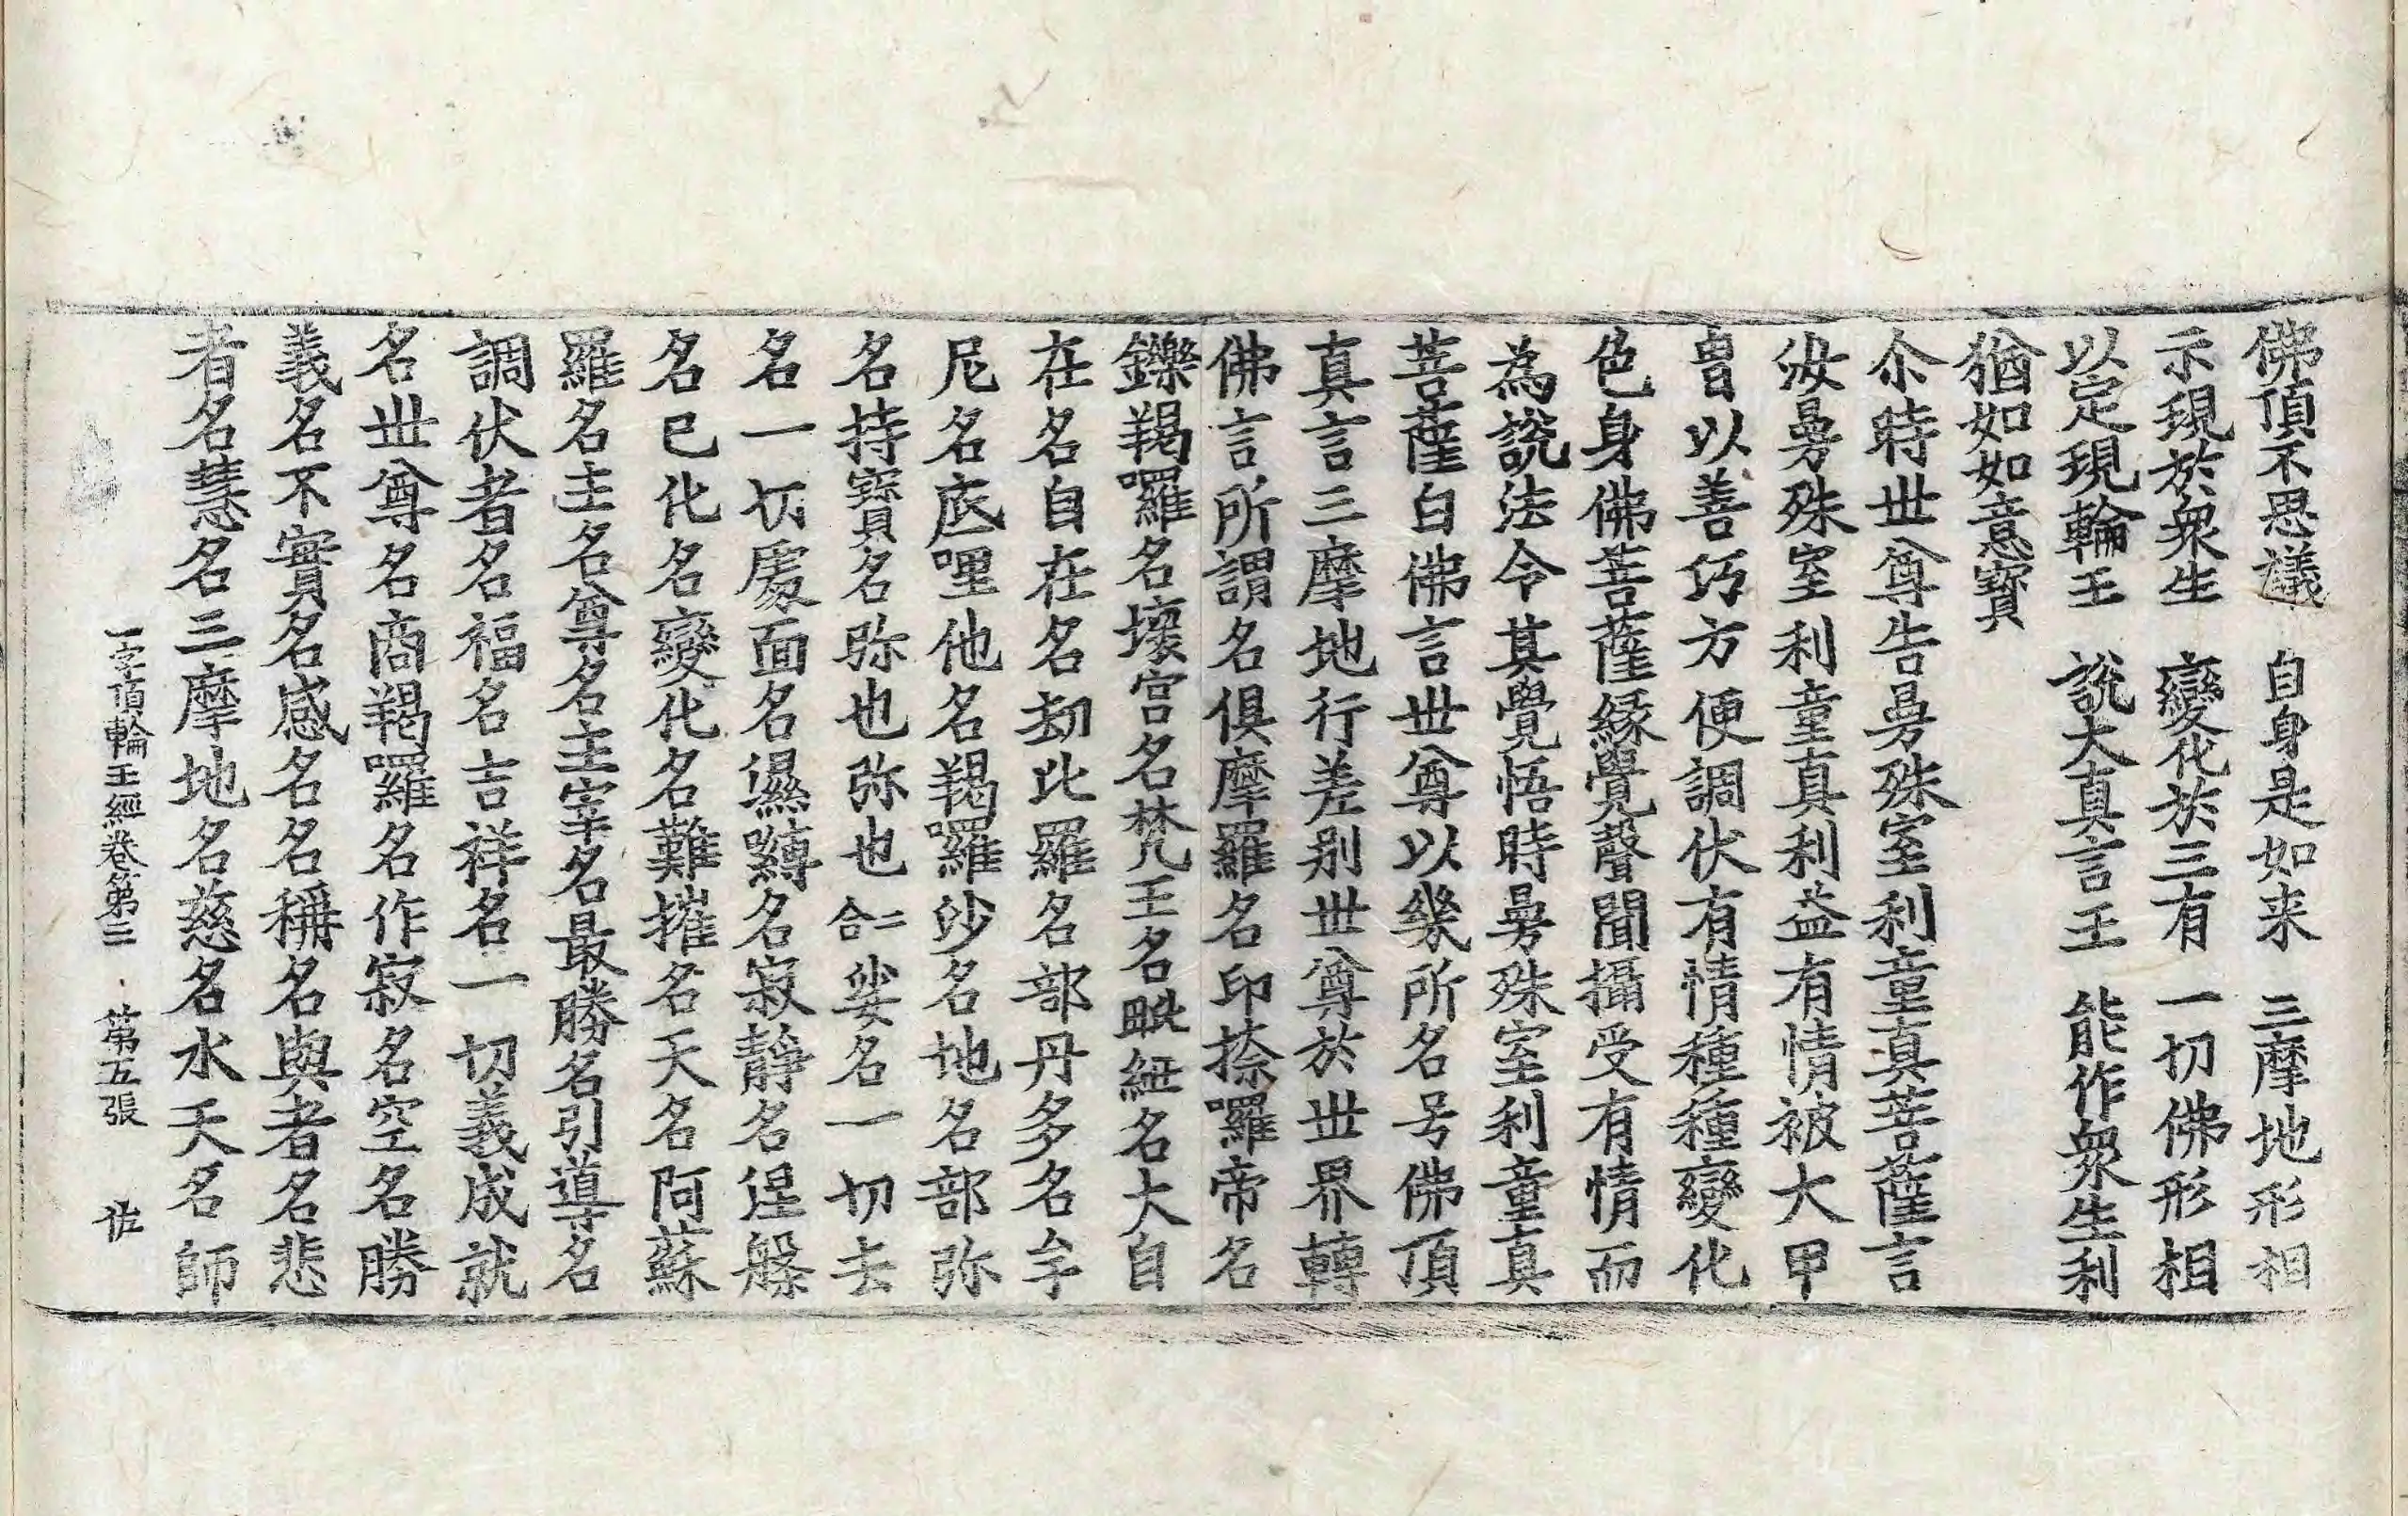 佛頂不思議　自身是如来　三摩地形相
示現於衆生　變化於三有　一切佛形相
以定現輪王　說大真言王　能作衆生利
猶如如意寶
尒時世尊告曼殊室利童真菩薩言
汝曼殊室利童真利益有情被大甲
胄以善巧方便調伏有情種種變化
色身佛菩薩緣覺聲聞攝受有情而
為說法令其覺悟時曼殊室利童真
菩薩白佛言世尊以幾所名号佛頂
真言三摩地行差別世尊於世界轉
佛言所謂名俱摩羅名印捺囉帝名
鑠羯囉名壞宮名梵王名毗紐名大自
在名自在名劫比羅名部丹多名牟
尼名底哩他名羯囉沙名地名部弥
名持寶名弥也弥也二合娑名一切去
名一切處面名濕嚩名寂靜名涅槃
名已化名變化名難摧名天名阿蘇
羅名主名尊名主宰名最勝名引導名
調伏者名福名吉祥名一切義成就
名世尊名商羯囉名作寂名空名勝
義名不實名感名名稱名與者名悲
者名慧名三摩地名慈名水天名師
一字頂輪王經卷第二　第五張　佐